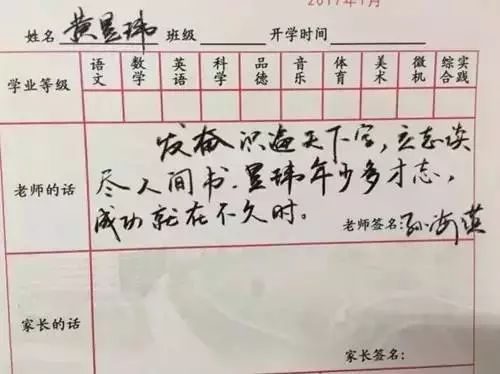 2017年1月
姓名 黄昱玮 班级 开学时间
学业等级 语文 数学 英语 科学 品德 音乐 体育 美术 微机 综合实践
老师的话
发奋识遍天下字，立志读
尽人间书。昱玮年少多才志，
成功就在不久时。
老师签名：孙海英
家长的话
家长签名：